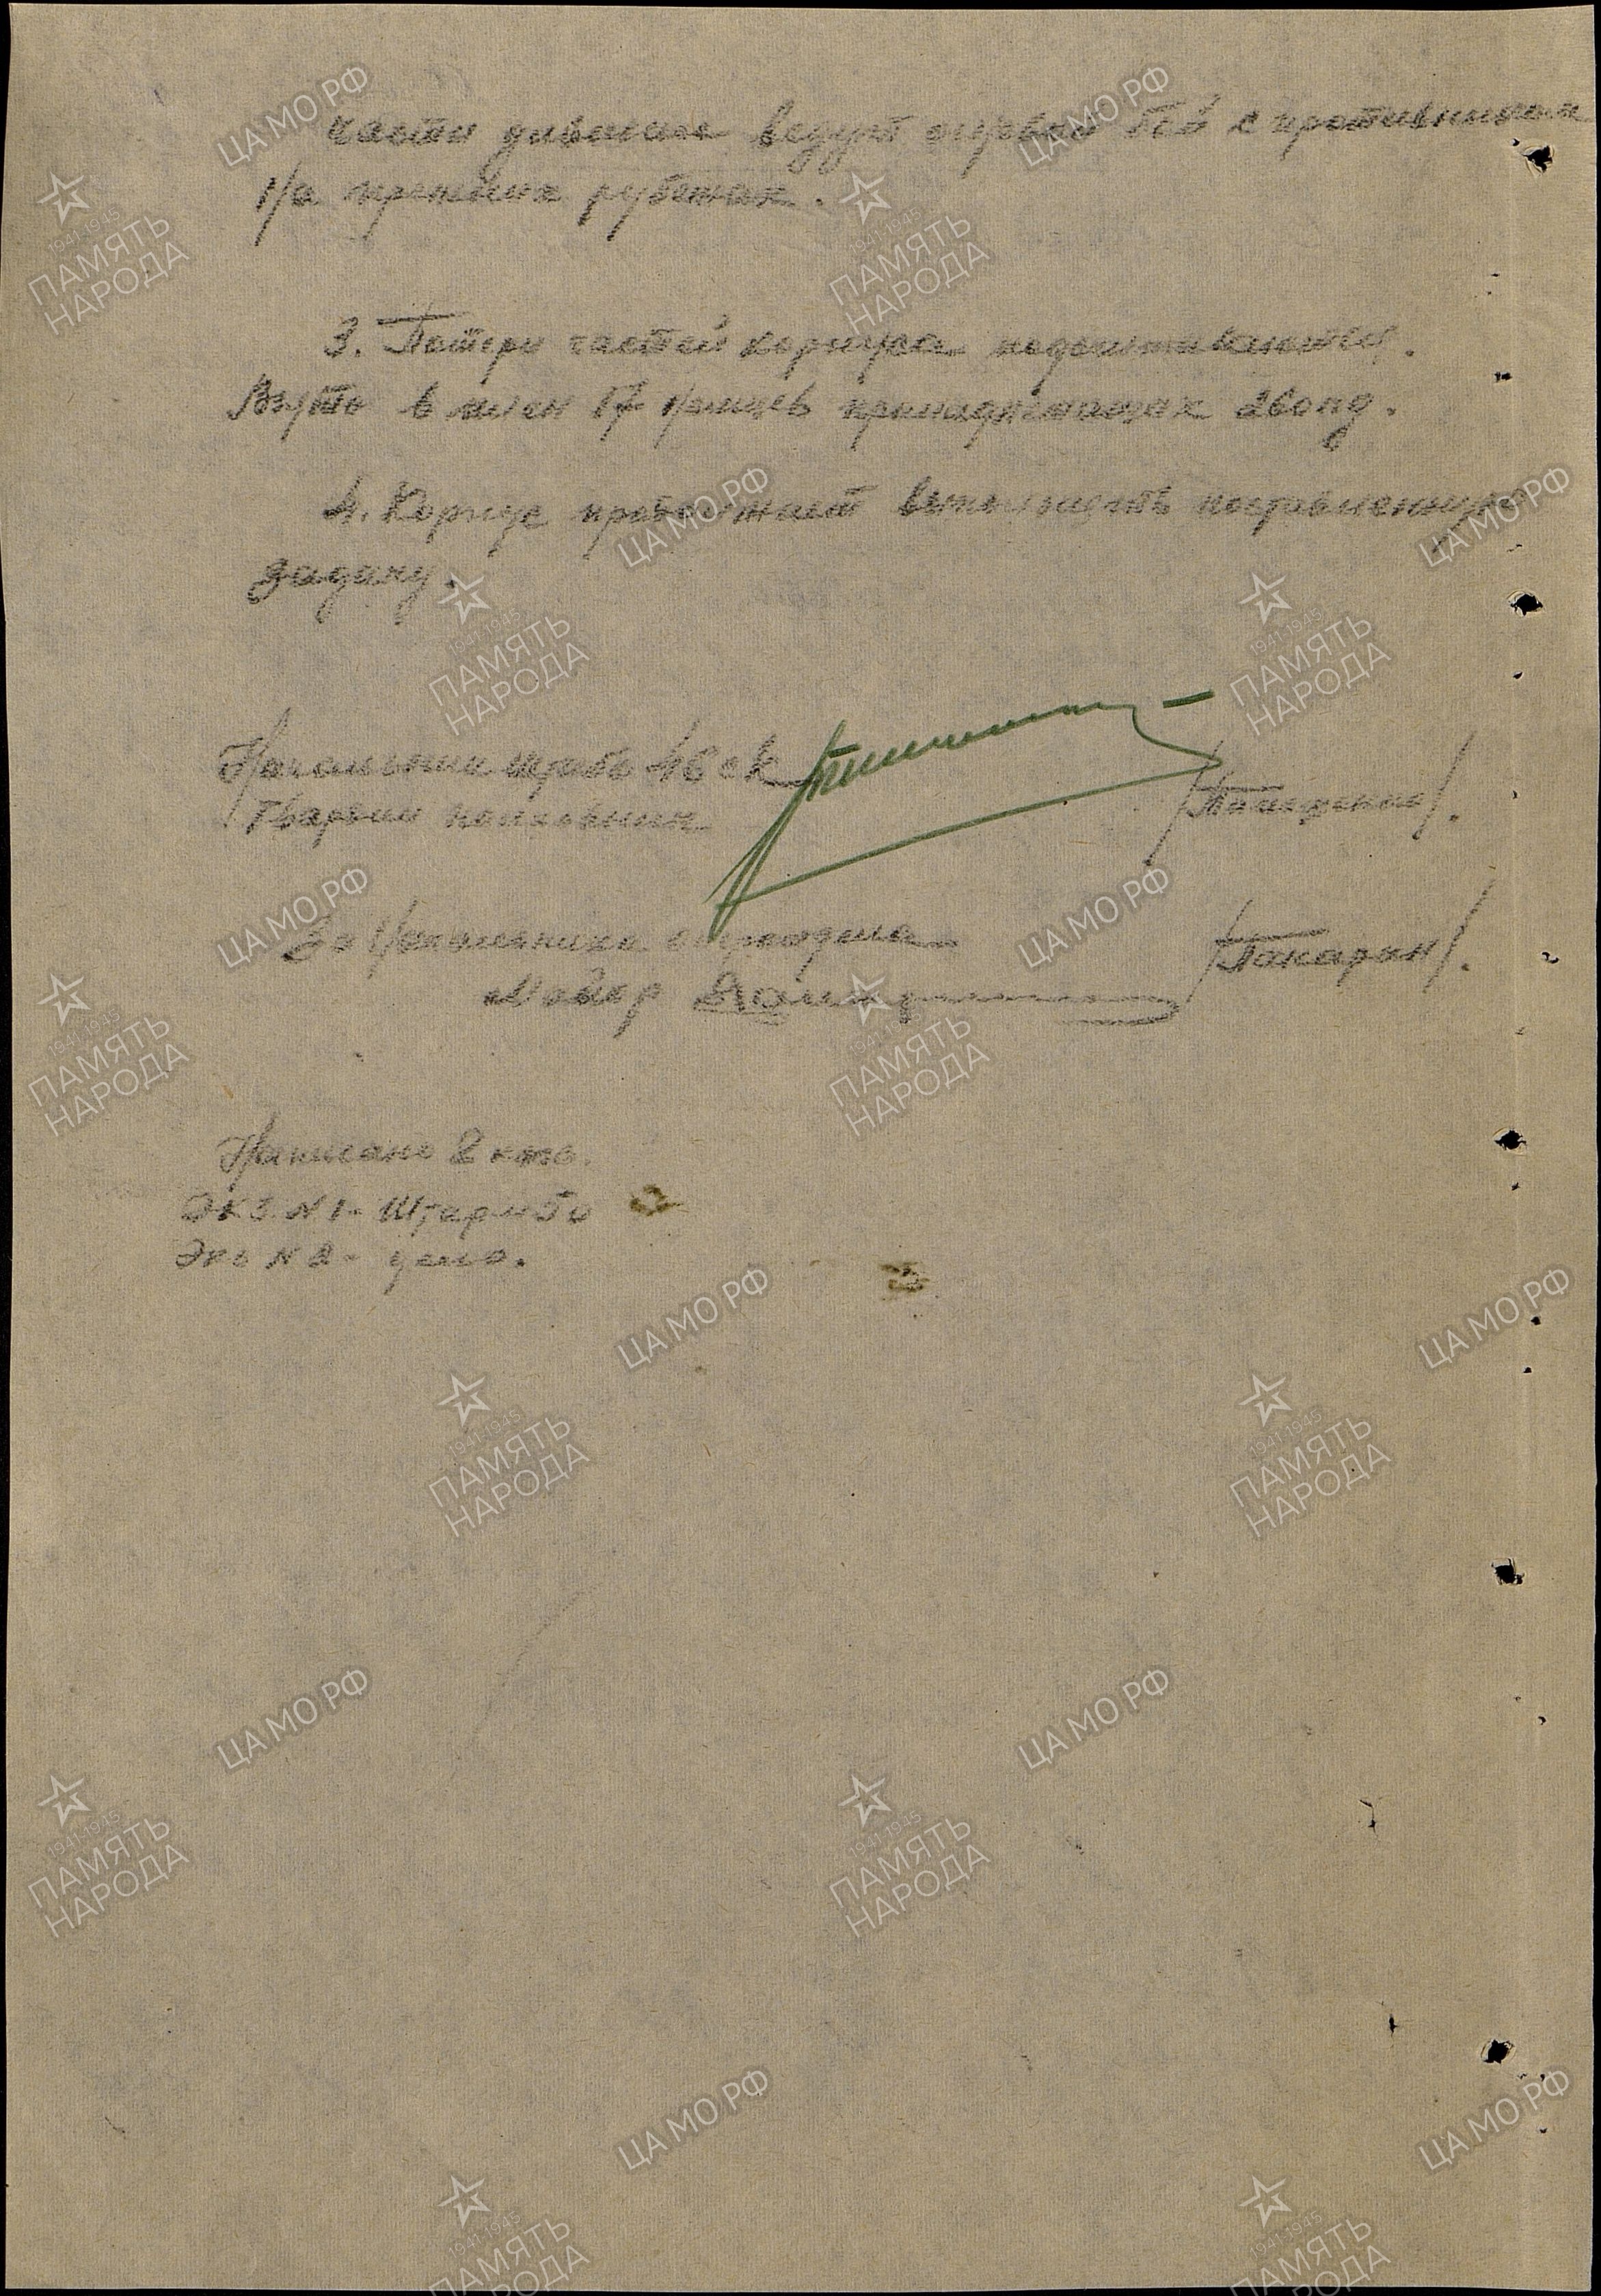 Части дивизии ведут огневой бой с противником
на прежних рубежах.
3. Потери частей корпуса подсчитываются.
Взято в плен 17 немцев принадлежащих 260 пд.
4. Корпус продолжает выполнять поставленную
задачу.
Начальник штаба 46 ск
Гвардии полковник
За Начальника оперотдела /Токарин/.
Майор
Написано 2 экз.
Экз. N 1 - Штарм 50
Экз N 2 - дело.
ЦА МО РФ
1941-1945
ПАМЯТЬ
НАРОДА